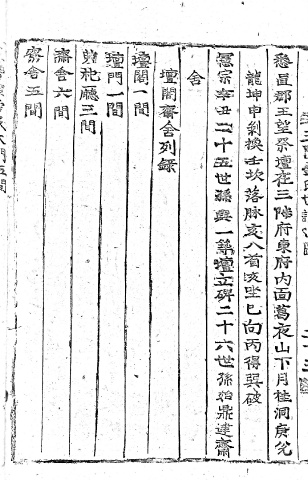 悉直郡王望祭壇在三陟府東府内面葛夜山下月桂洞庚兌
龍坤申剝換壬坎落脉亥入首亥坐巳向丙得巽破
憲宗辛丑二十五世孫興一築壇立碑二十六世孫 鼎建齋
舍
壇閣齋舍列錄
壇閣一間
壇門一間
典祀廳三間
齋舍六間
齋舍五間
大門五間